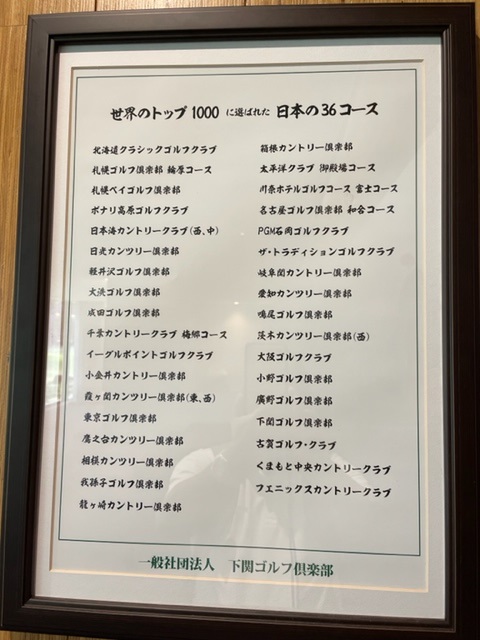 世界のトップ1000に選ばれた 日本の36コース
北海道クラシックゴルフクラブ
札幌ゴルフ倶楽部 輪厚コース
札幌ベイゴルフ倶楽部
ボナリ高原ゴルフクラブ
日本海カントリークラブ(西、中)
日光カンツリー倶楽部
軽井沢ゴルフ倶楽部
大洗ゴルフ倶楽部
成田ゴルフ倶楽部
千葉カントリークラブ 梅郷コース
イーグルポイントゴルフクラブ
小金井カントリー倶楽部
霞ヶ関カンツリー倶楽部(東、西)
東京ゴルフ倶楽部
鷹之台カンツリー倶楽部
相模カンツリー倶楽部
我孫子ゴルフ倶楽部
龍ヶ崎カントリー倶楽部
箱根カントリー倶楽部
太平洋クラブ 御殿場コース
川奈ホテルゴルフコース 富士コース
名古屋ゴルフ倶楽部 和合コース
PGM石岡ゴルフクラブ
ザ・トラディションゴルフクラブ
岐阜関カントリー倶楽部
愛知カンツリー倶楽部
鳴尾ゴルフ倶楽部
茨木カンツリー倶楽部(西)
大阪ゴルフクラブ
小野ゴルフ倶楽部
廣野ゴルフ倶楽部
下関ゴルフ倶楽部
古賀ゴルフ・クラブ
くまもと中央カントリークラブ
フェニックスカントリークラブ
一般社団法人 下関ゴルフ倶楽部